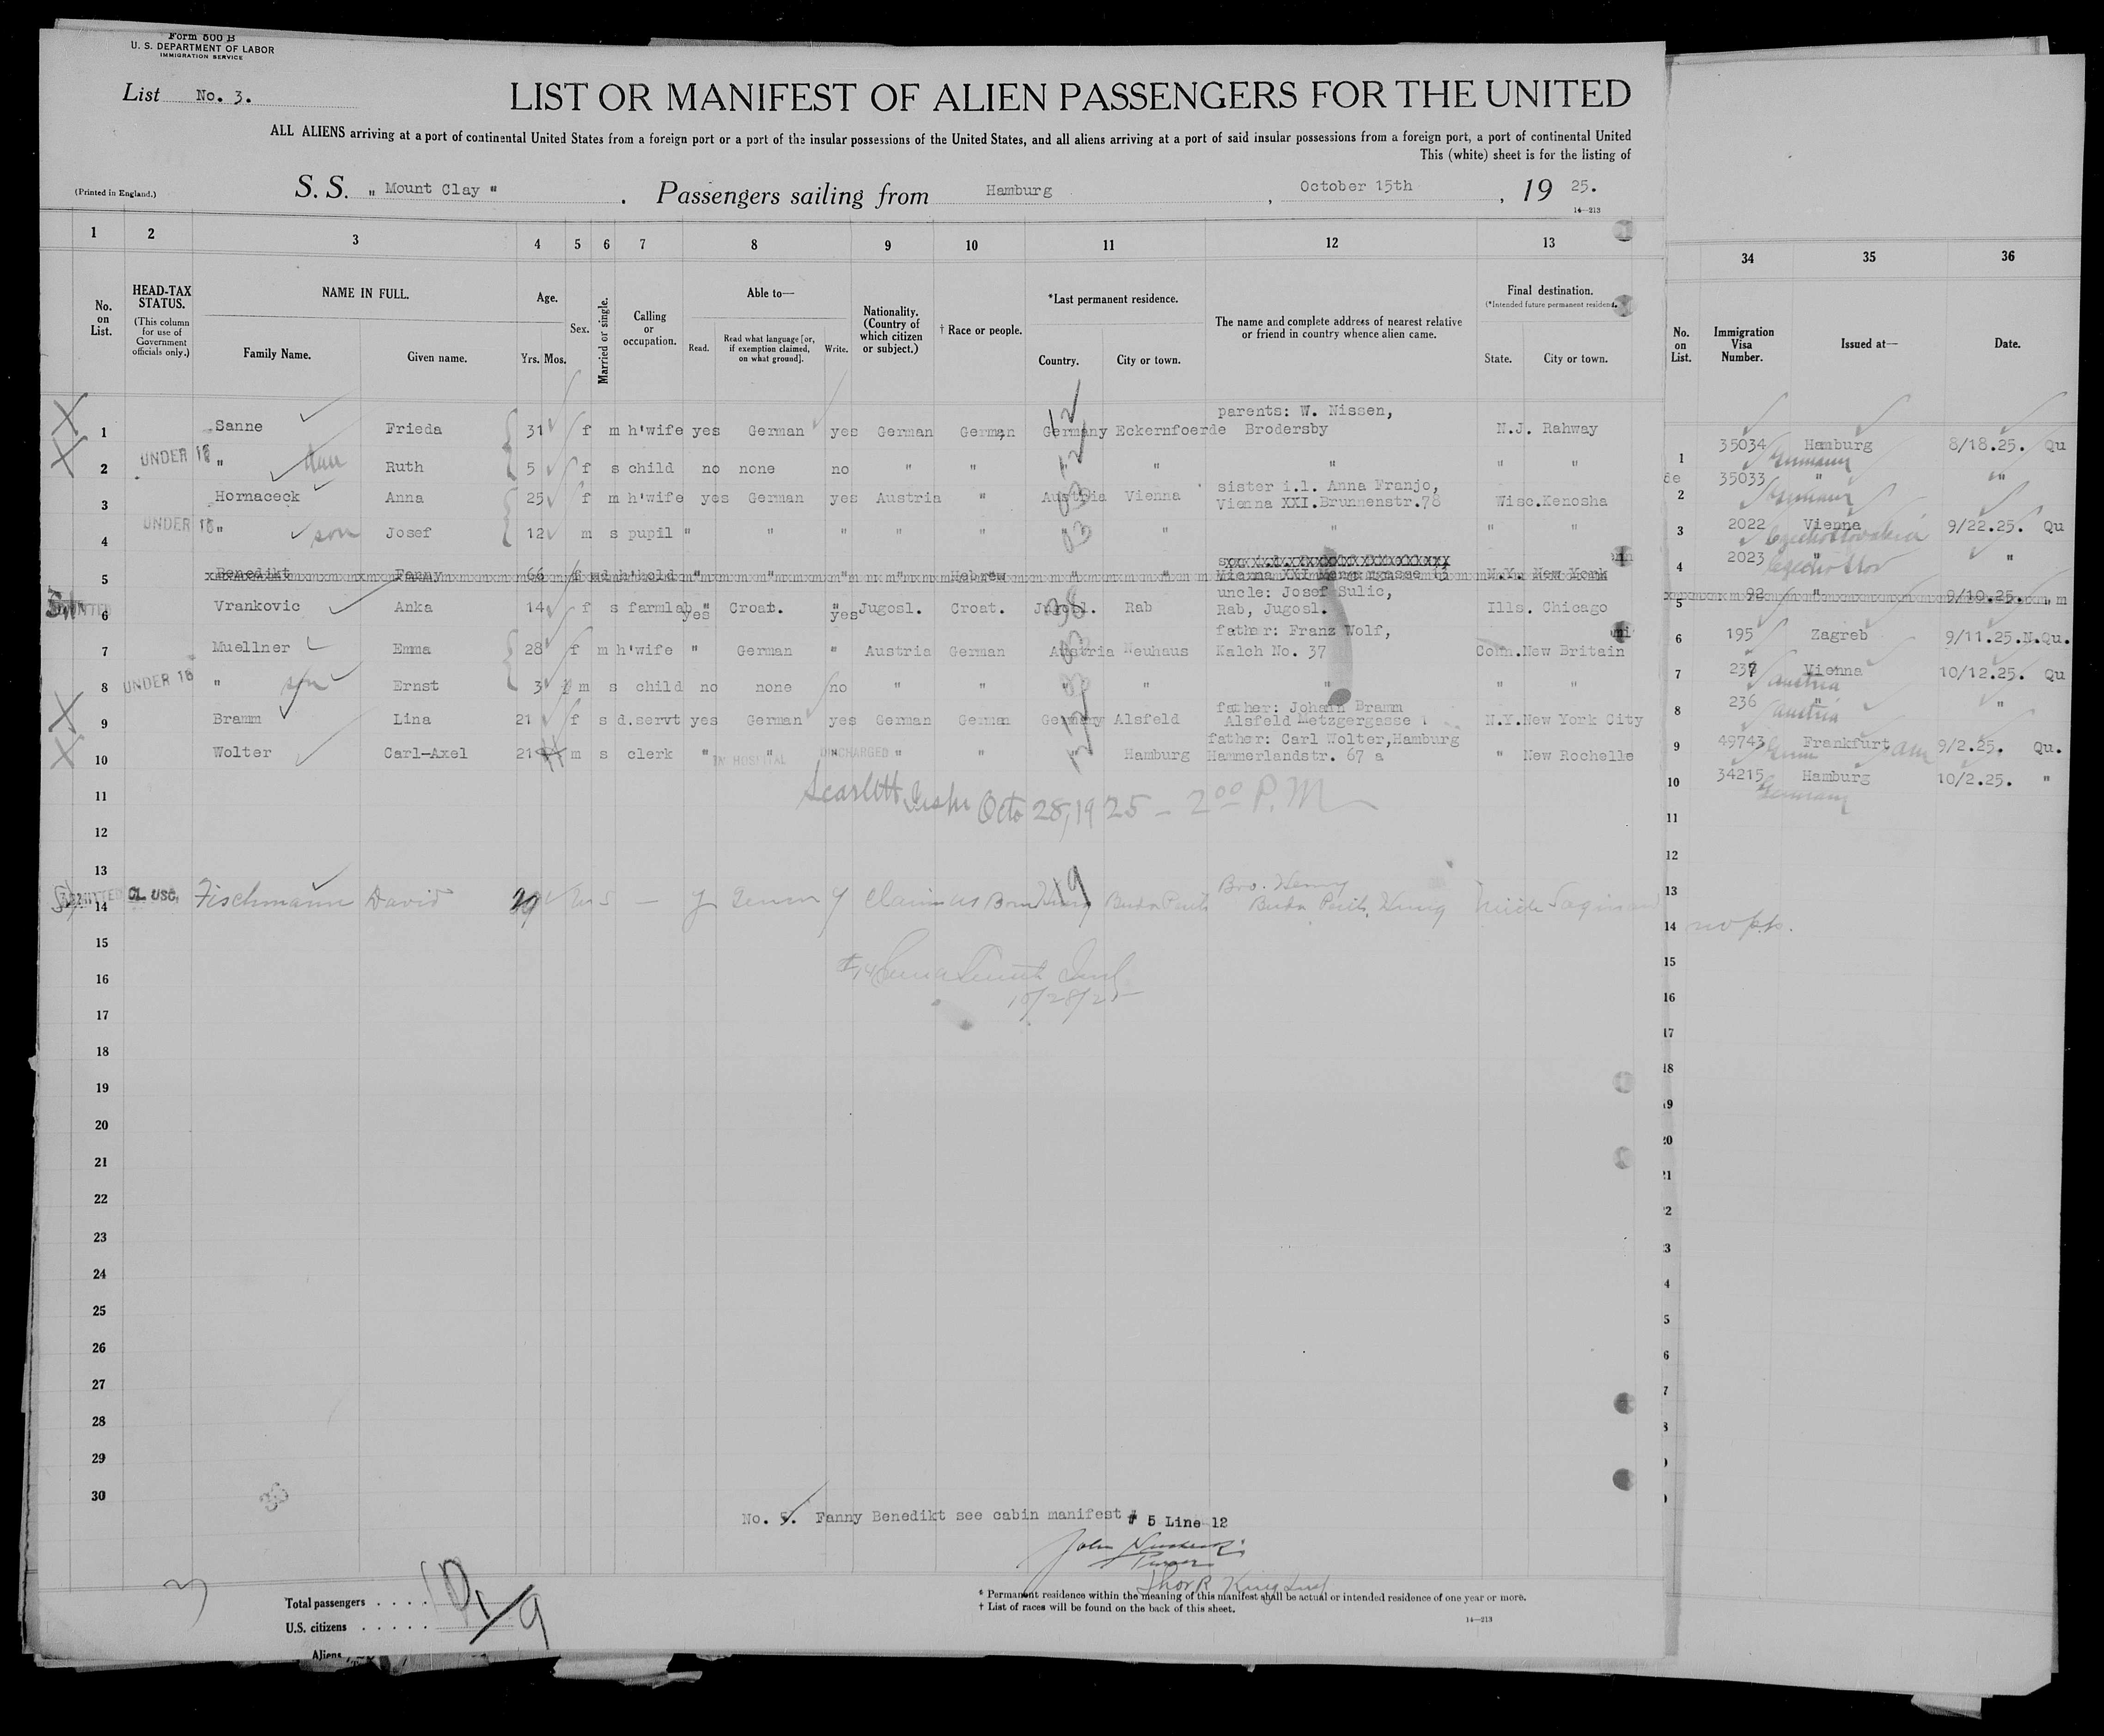 Form 500 B
U. S. DEPARTMENT OF LABOR
IMMIGRATION SERVICE
List No. 3.
LIST OR MANIFEST OF ALIEN PASSENGERS FOR THE UNITED
ALL ALIENS arriving at a port of continental United States from a foreign port or a port of the insular possessions of the United States, and all aliens arriving at a port of said insular possessions from a foreign port, a port of continental United
This (white) sheet is for the listing of
(Printed in England.)
S. S. " Mount Clay " . Passengers sailing from Hamburg , October 15th , 19 25.
14—213
1 2 3 4 5 6 7 8 9 10 11 12 13 34 35 36
No. on List.
HEAD-TAX STATUS.
(This column for use of Government officials only.)
NAME IN FULL.
Family Name. Given name.
Age.
Yrs. Mos.
Sex.
Married or single.
Calling or occupation.
Able to—
Read. Read what language [or, if exemption claimed, on what ground]. Write.
Nationality. (Country of which citizen or subject.)
† Race or people.
*Last permanent residence.
Country. City or town.
The name and complete address of nearest relative or friend in country whence alien came.
Final destination.
(*Intended future permanent residence.)
State. City or town.
No. on List.
Immigration Visa Number.
Issued at—
Date.
parents: W. Nissen,
1 Sanne Frieda 31 f m h'wife yes German yes German German Germany Eckernfoerde Brodersby N.J. Rahway
1 35034 Hamburg 8/18.25. Qu
Germany
2 UNDER 16 " Ruth 5 f s child no none no " " " " " " "
2 35033 " "
Germany
sister i.l. Anna Franjo,
3 Hornaceck Anna 25 f m h'wife yes German yes Austria " Austria Vienna Vienna XXI.Brunnenstr.78 Wisc.Kenosha
3 2022 Vienna 9/22.25. Qu
Czechoslovakia
4 UNDER 16 " son Josef 12 m s pupil " " " " " " " " " "
4 2023 " "
5 Benedikt Fanny 66 f wd h'hold " " " " Hebrew " " N.Y. New York
5 92 " 9/10.25.
uncle: Josef Sulic,
6 Vrankovic Anka 14 f s farmlab " yes Croat. " yes Jugosl. Croat. Jugosl. Rab Rab, Jugosl. Ills. Chicago
6 195 Zagreb 9/11.25.N.Qu.
father: Franz Wolf,
7 Muellner Emma 28 f m h'wife " German " Austria German Austria Neuhaus Kalch No. 37 Conn.New Britain
7 237 Vienna 10/12.25. Qu
Austria
8 UNDER 16 " son Ernst 3 m s child no none no " " " " " " "
8 236 " "
Austria
father: Johann Bramm
9 Bramm Lina 21 f s d.servt yes German yes German German Germany Alsfeld Alsfeld Metzgergasse 1 N.Y.New York City
9 49743 Frankfurt 9/2.25. Qu.
father: Carl Wolter,Hamburg
10 Wolter Carl-Axel 21 m s clerk " " " " " Hamburg Hammerlandstr. 67 a " New Rochelle
IN HOSPITAL DISCHARGED
10 34215 Hamburg 10/2.25. "
Germany
11
Oct 28, 1925 - 2 00 P.M
12
13
Bro. Henry
14 ADMITTED CL USC, Fischmann David S — y y Claim US Born Buda Pesth Buda Pesth, Hung
14 no pp.
15
16
10/28/25
17
18
19
20
21
22
23
24
25
26
27
28
29
30
No. 5. Fanny Benedikt see cabin manifest # 5 Line 12
Purser
Total passengers . . . . 10
U.S. citizens . . . . . 1/9
Aliens
* Permanent residence within the meaning of this manifest shall be actual or intended residence of one year or more.
† List of races will be found on the back of this sheet.
14—213